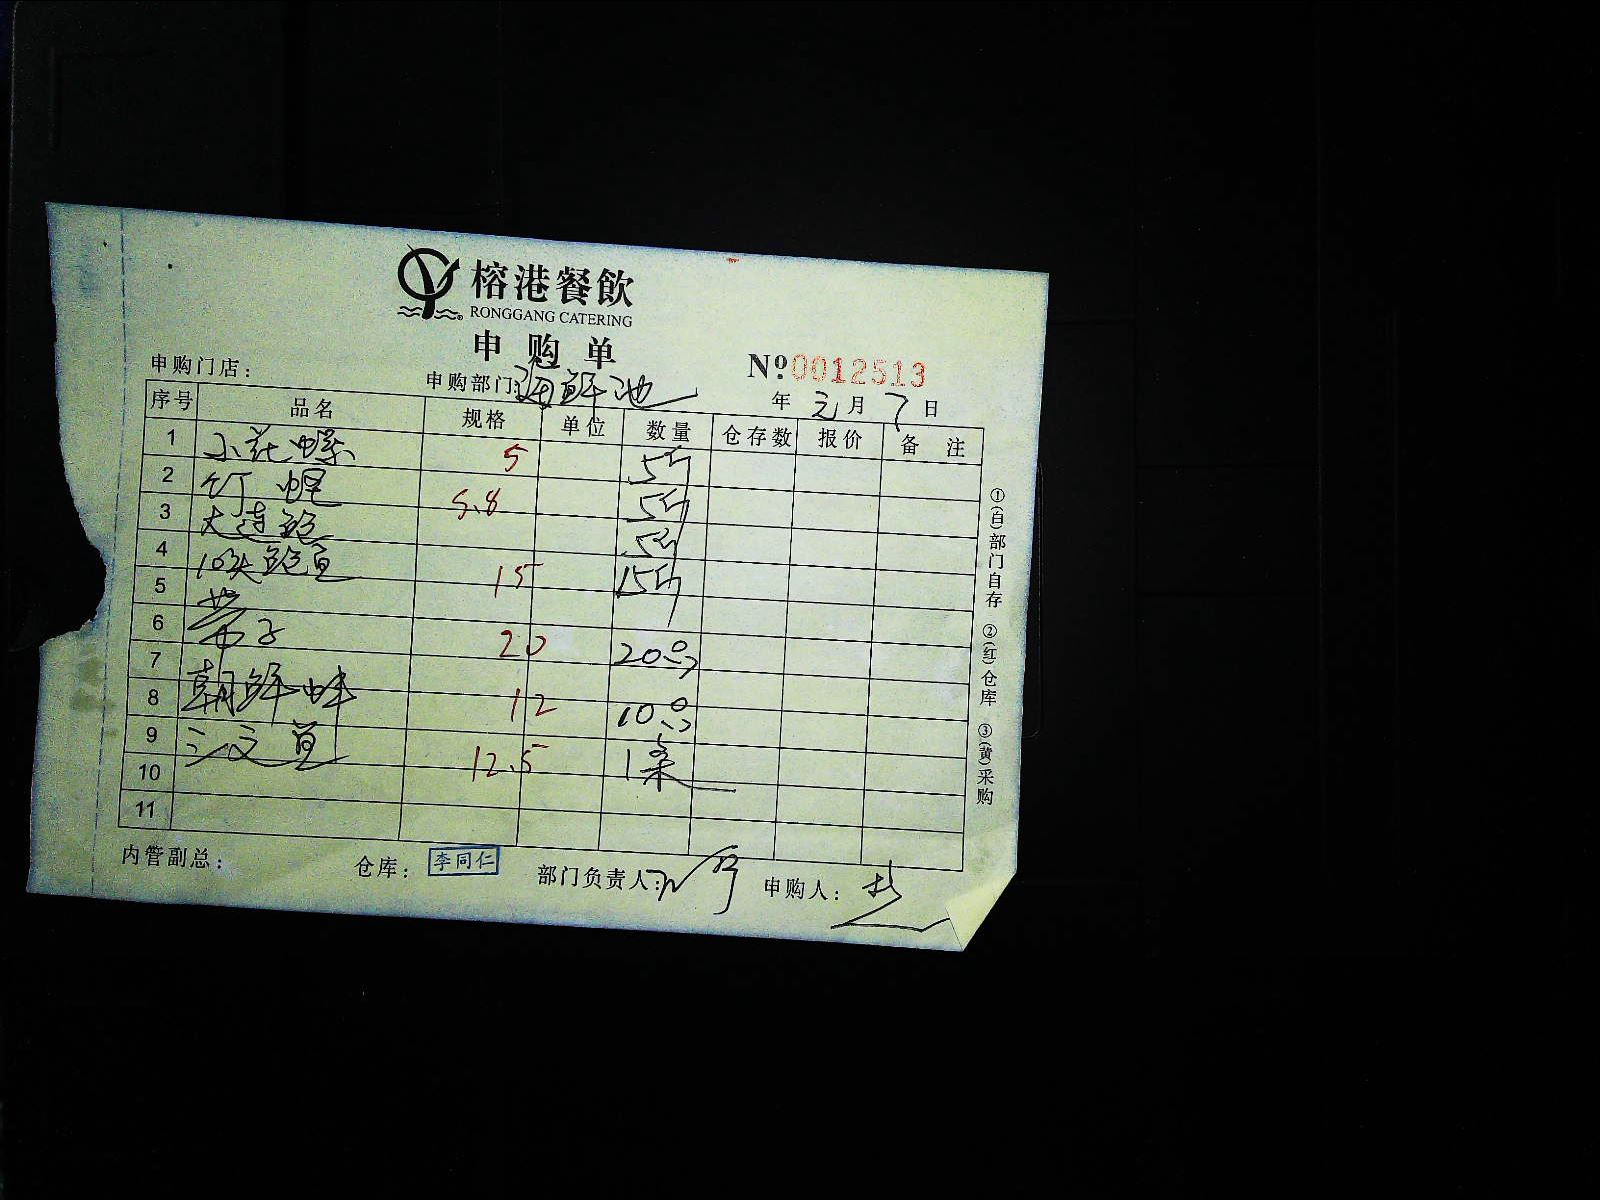 榕港餐飲
RONGGANG CATERING
申购单
申购门店: 申购部门:海鲜池 №0012513
年 元 月 7 日
序号 品名 规格 单位 数量 仓存数 报价 备注
1 小花螺 5 5斤
2 竹蛏 5.8 5斤
3 大连鲍 5斤
4 10头鲍鱼 15 15斤
5
6 带子 20 20只
7
8 朝鲜蚌 12 10只
9 三文鱼 12.5 1条
10
11
①(白)部门自存 ②(红)仓库 ③(黄)采购
内管副总: 仓库: 李同仁 部门负责人: 申购人: